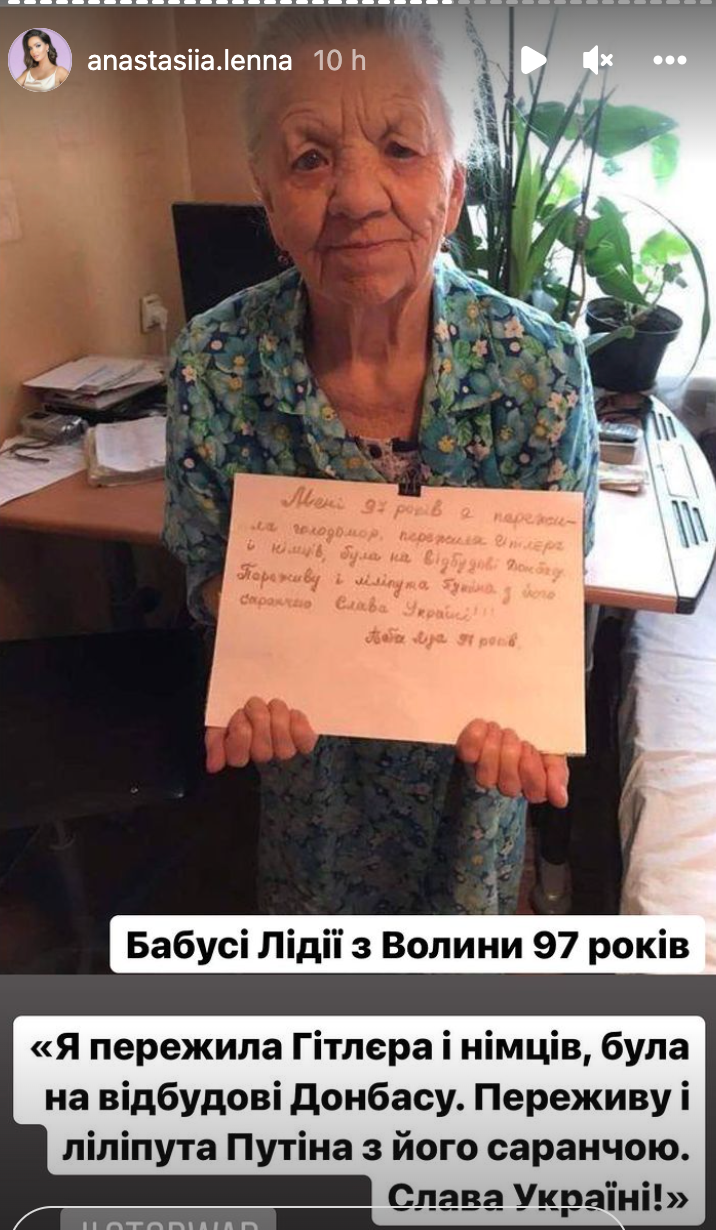 anastasiia.lenna 10 h
Мені 97 років я пережи-
ла голодомор, пережила Гітлера
і німців, була на відбудові Донбасу
Переживу і ліліпута Путіна з його
саранчою Слава Україні!!!
Баба Ліда 97 років.
Бабусі Лідії з Волини 97 років
«Я пережила Гітлєра і німців, була
на відбудові Донбасу. Переживу і
ліліпута Путіна з його саранчою.
Слава Україні!»